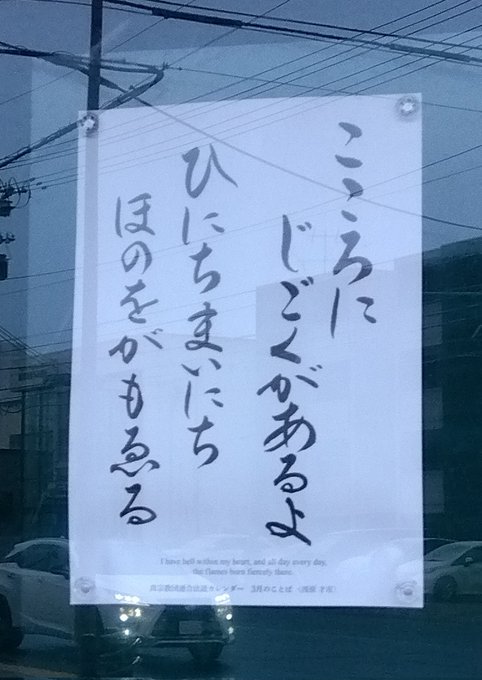 こゝろに
じごくがあるよ
ひにちまいにち
ほのをがもゑる
I have hell within my heart, and all day every day,
the flames burn fiercely there.
真宗教団連合法語カレンダー 3月のことば (浅原 才市)